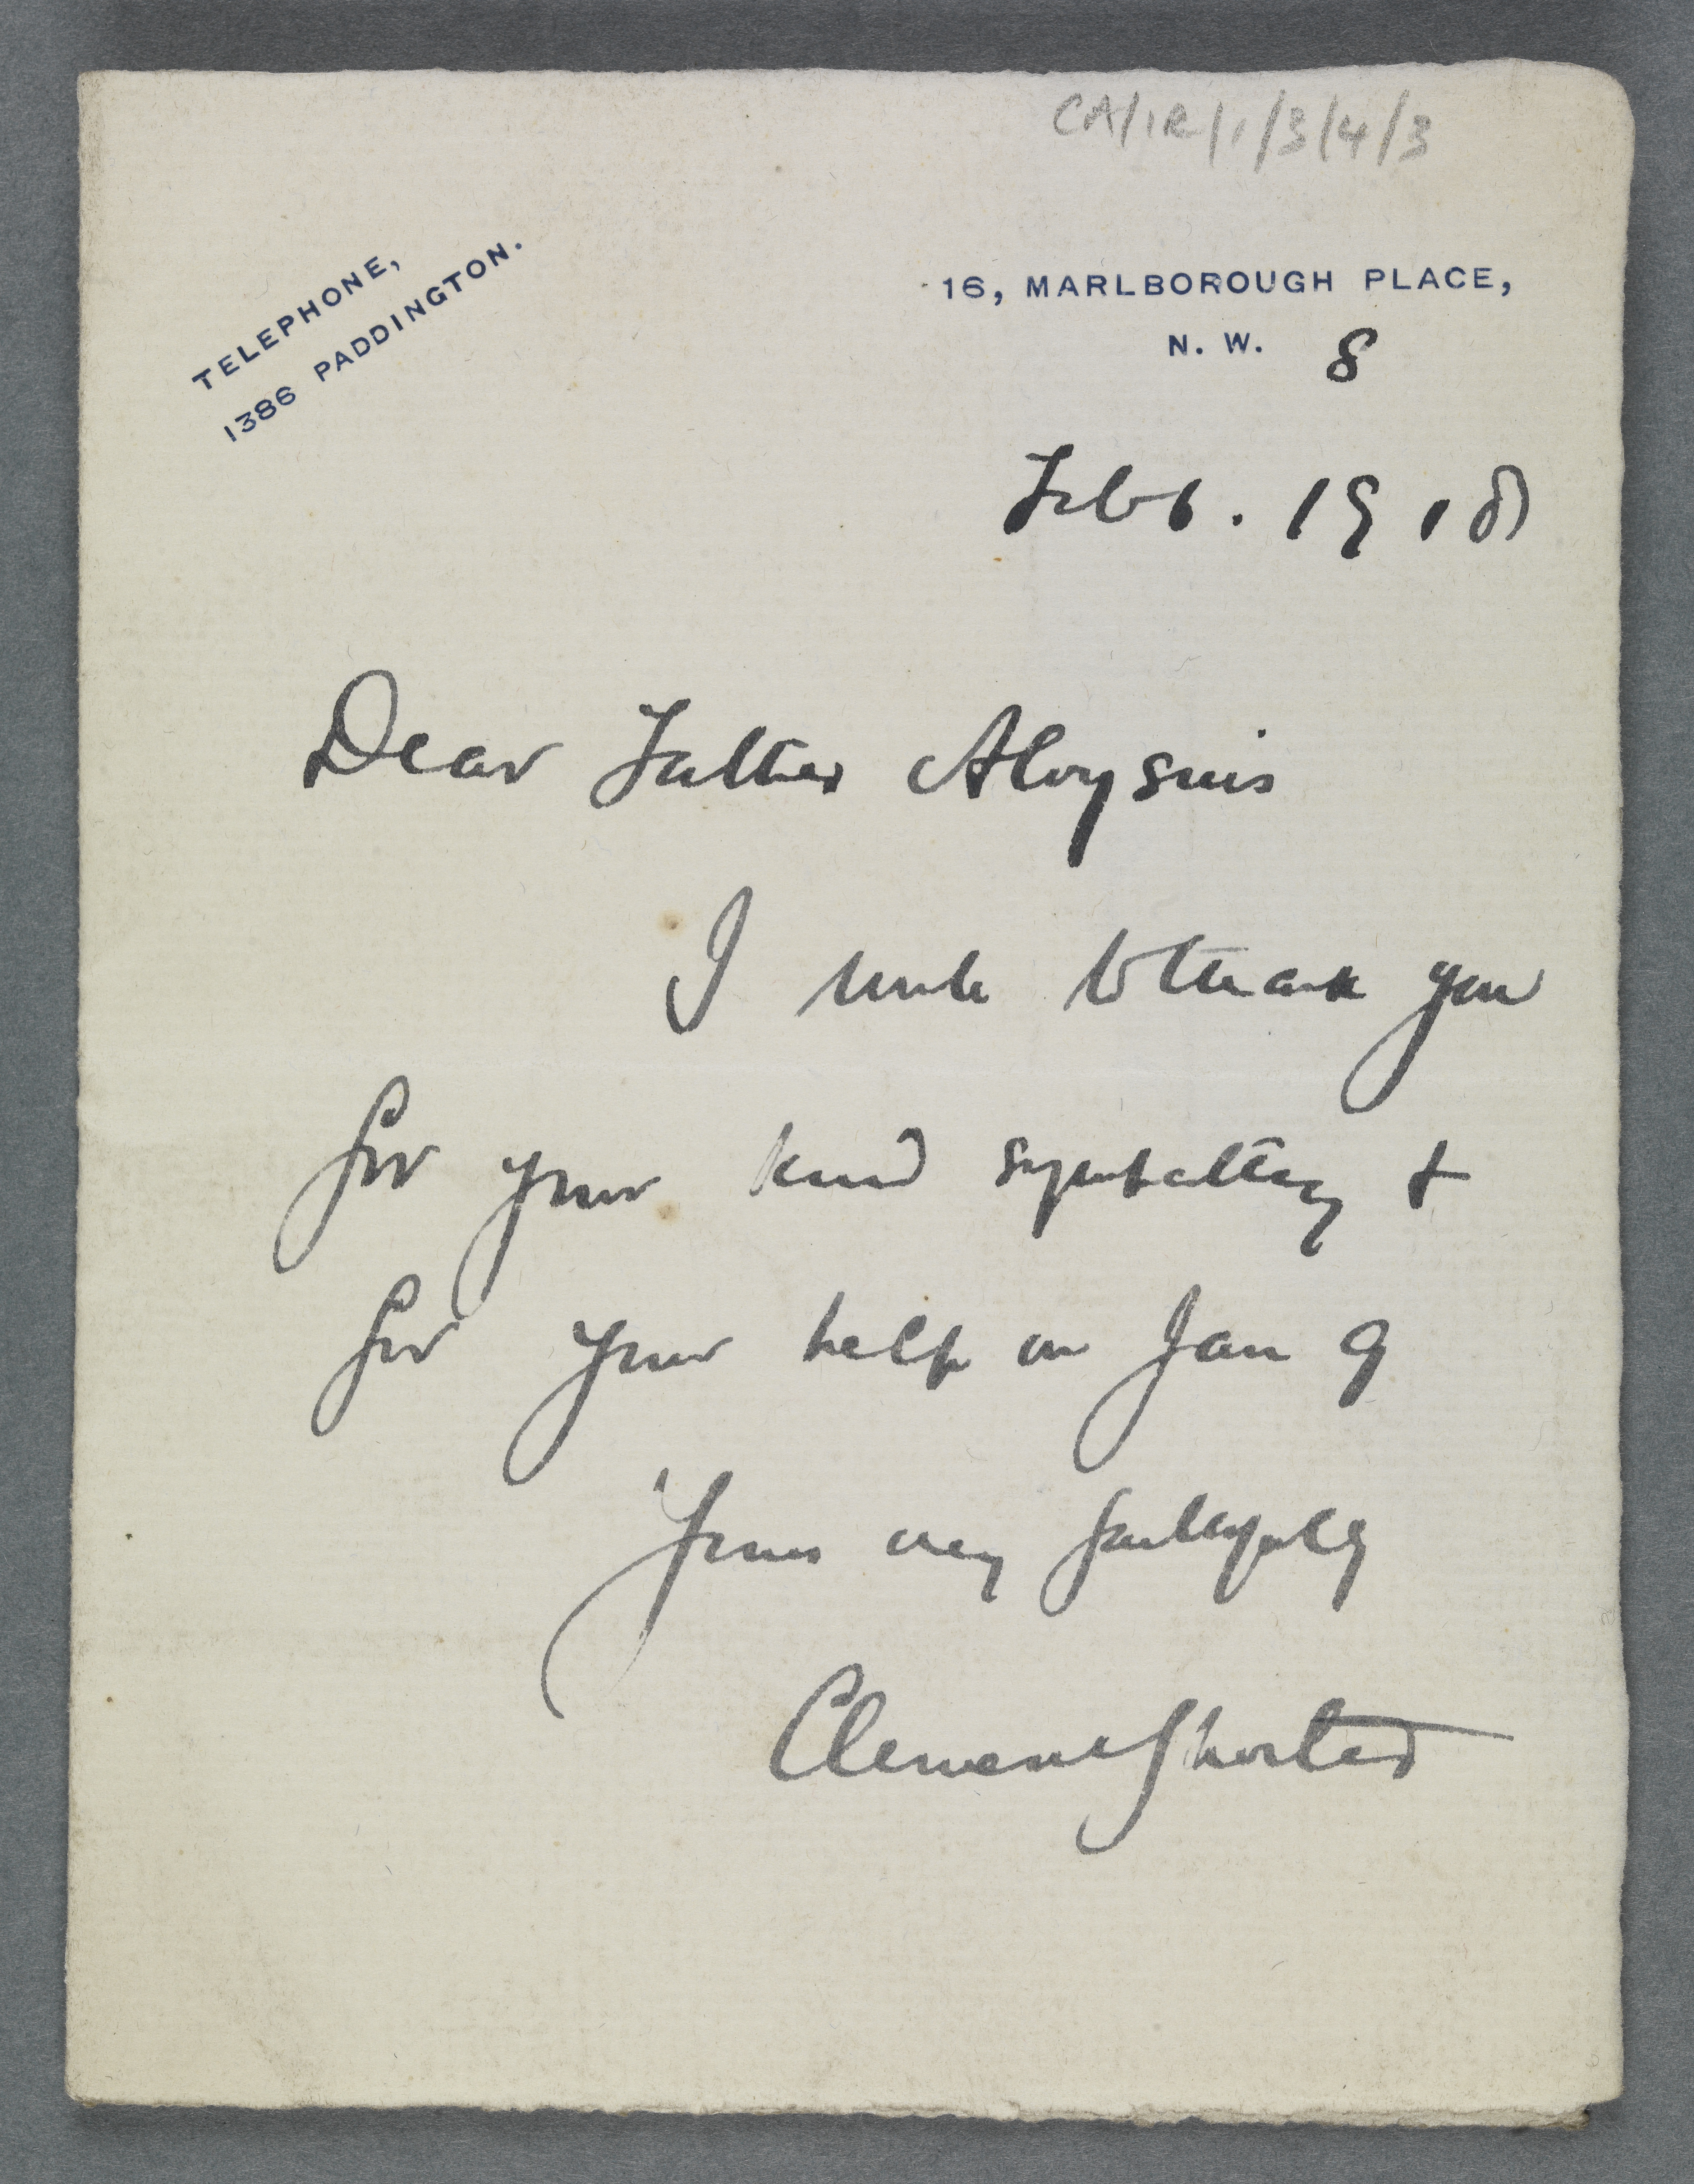 CA/IR/1/3/4/3
TELEPHONE,
1386 PADDINGTON.
16, MARLBOROUGH PLACE,
N. W. 8
Feb 6. 1918
Dear Father Aloysius
I write to thank you
for your kind sympathy &
for your help on Jan 9
Yours very faithfully
Clement Shorter